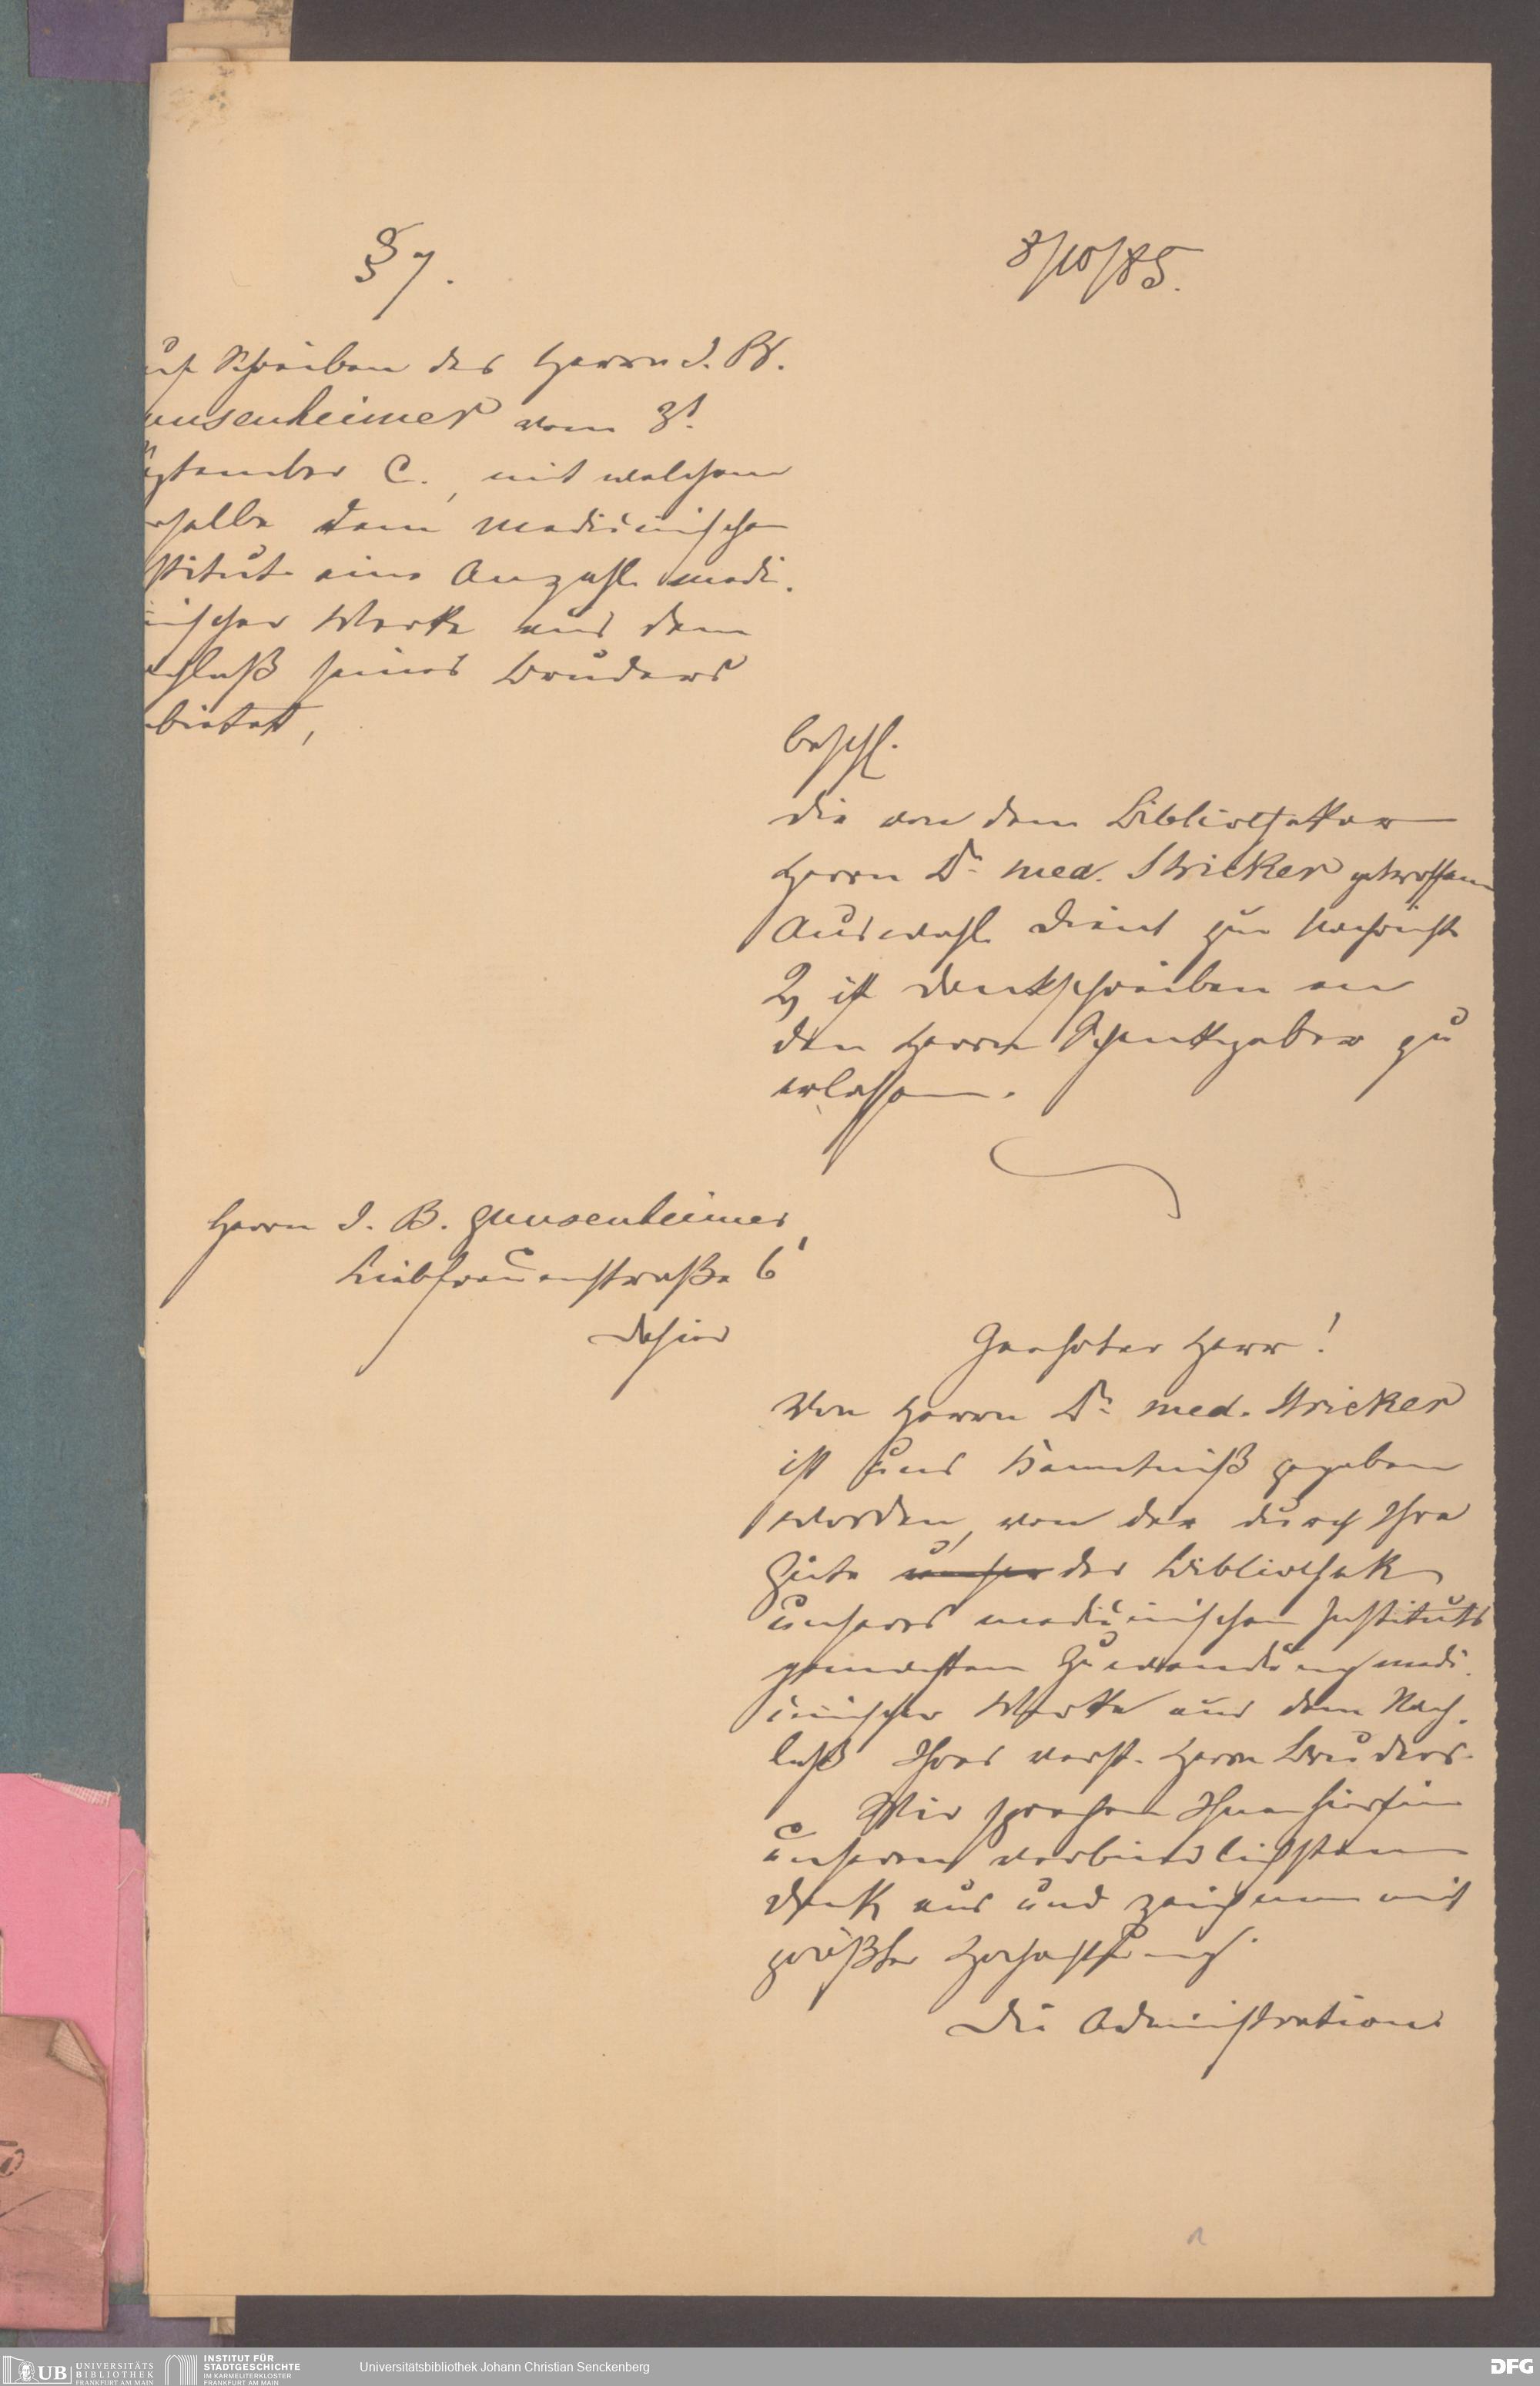 § 7.
8/10/85.
uf Schreiben des Herrn J. B.
unsenheimer vom 3t.
eptember c., mit welchem
rselbe dem medicinischen
stitut eine Anzahl medi-
inischer Werke aus dem
chlaß seines Bruders
bietet,
beschl.
die von dem Bibliothekar
Herrn Dr. med. Stricker getroffene
Auswahl dient zur Nachricht
& ist Dankschreiben an
den Herrn Schenkgeber zu
erlassen.
Herrn J. B. Gunsenheimer,
Liebfrauenstraße 6
dahier
Geehrter Herr!
Von Herrn Dr. med. Stricker
ist uns Kenntniß gegeben
worden, von der durch Ihre
Güte unser der Bibliothek
unseres medicinischen Instituts
gemachten Zuwendung medi-
cinischer Werke aus dem Nach-
laß Ihres verst. Herrn Bruders.
Wir sprechen Ihnen hierfür
unseren verbindlichsten
Dank aus und zeichnen mit
größter Hochachtung.
Die Administration
UB UNIVERSITÄTS
BIBLIOTHEK
FRANKFURT AM MAIN
INSTITUT FÜR
STADTGESCHICHTE
IM KARMELITERKLOSTER
FRANKFURT AM MAIN
Universitätsbibliothek Johann Christian Senckenberg
DFG